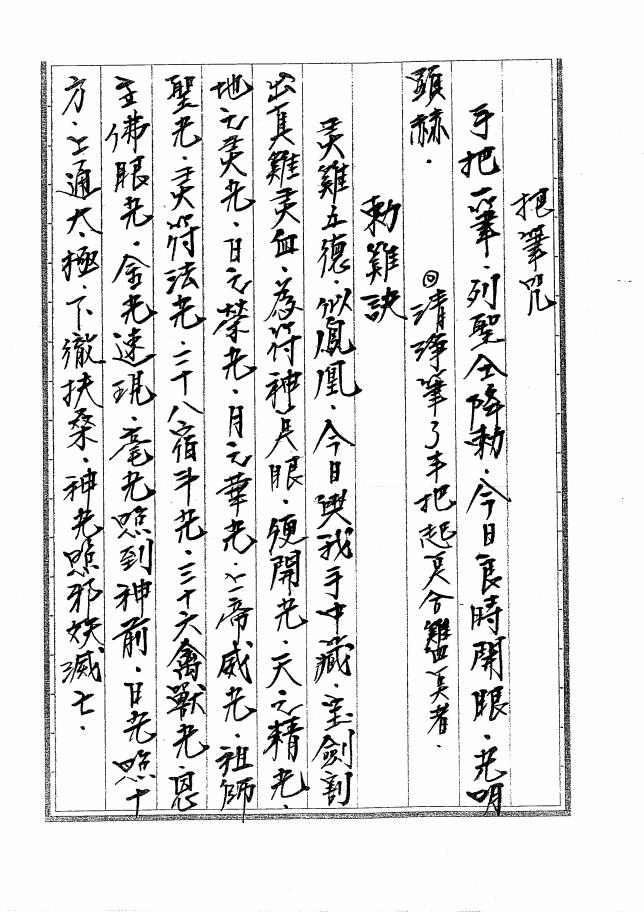 把筆咒
手把一筆．列聖仝降勅．今日良時開眼．光明
顕赫．
◎清淨筆了手把起 合雞血 者．
勅雞訣
灵雞五德．似鳳凰．今日與我手中藏．宝劍割
出真雞灵血．為符神点眼．便開光．天之精光．
地之灵光．日之榮光．月之華光．上帝威光．祖師
聖光．灵符法光．二十八宿斗光．三十六禽獸光．恩
主佛眼光．金光速現．毫光照到神前．日光照十
方．上通太極．下徹扶桑．神光照邪妖滅亡．